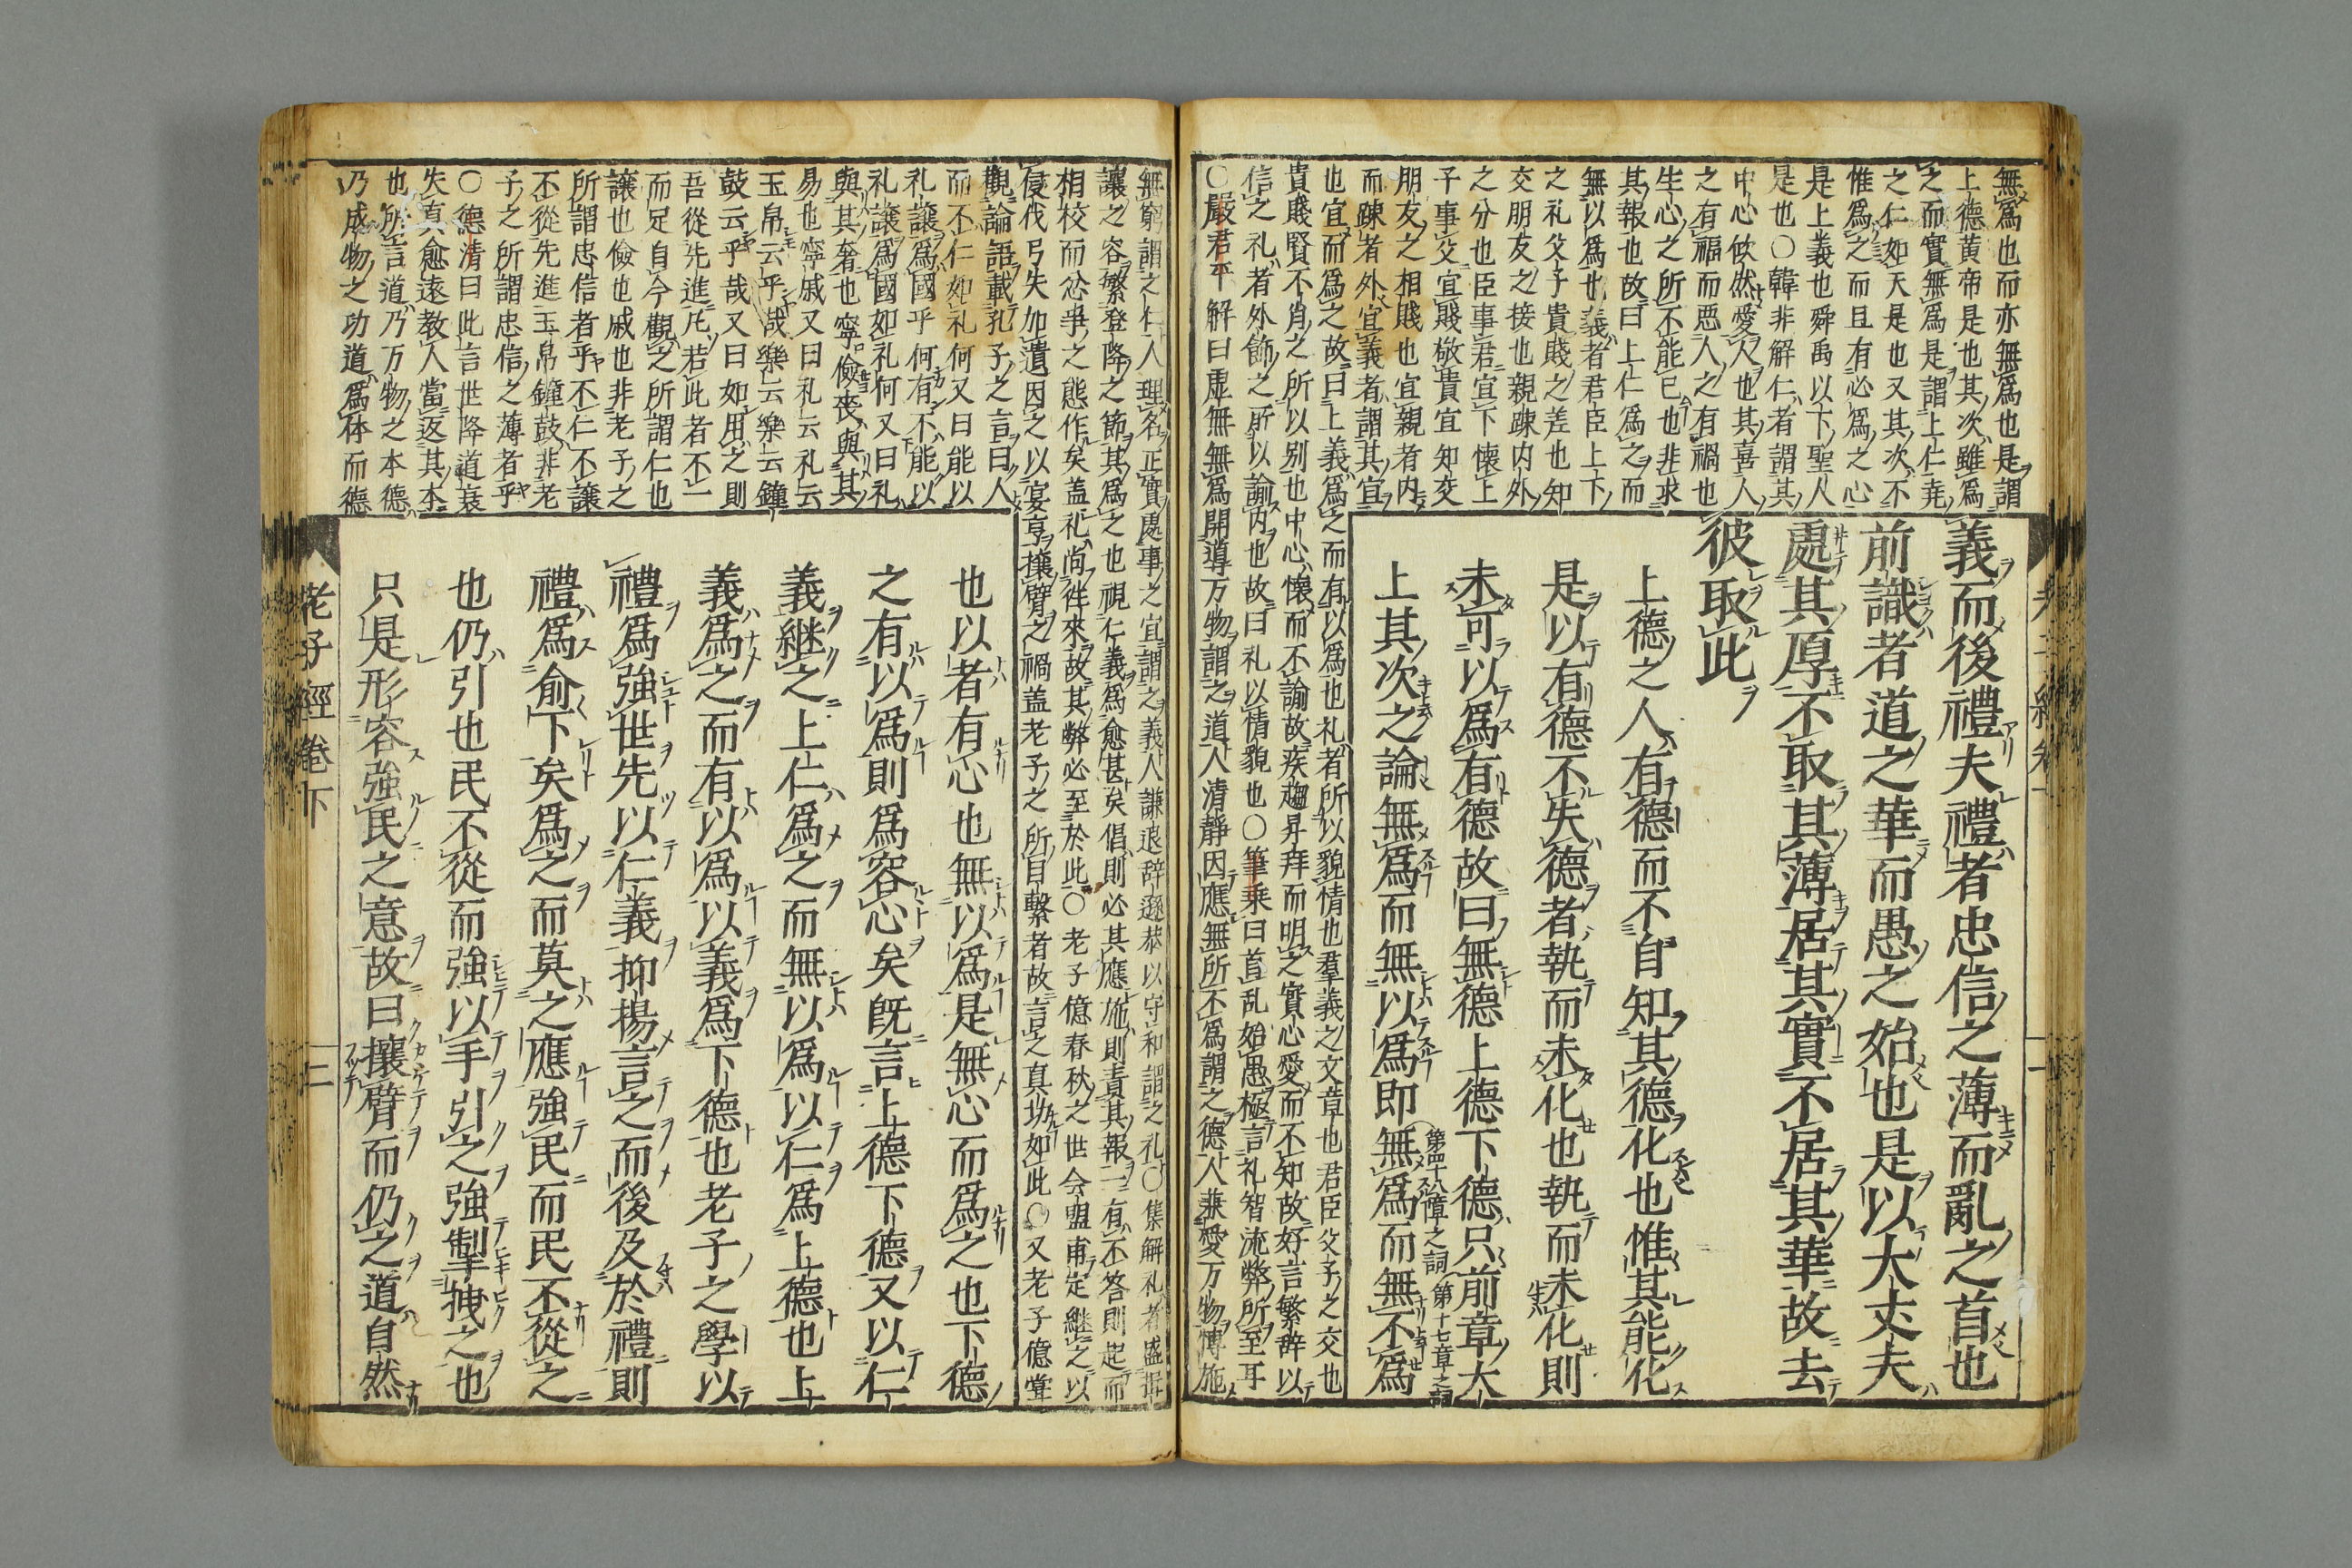 無爲也而亦無爲也是謂
上德黄帝是也其次雖爲
之而實無爲是謂上仁堯
之仁如天是也又其次不
惟爲之而且有必爲之心
是上義也舜禹以下聖人
是也〇韓非解仁者謂其
中心欣然愛人也其喜人
之有福而悪人之有禍也
生心之所不能已也非求
其報也故曰上仁爲之而
無以爲也義者君臣上下
之礼父子貴賤之差也知
交朋友之接也親疎内外
之分也臣事君宜下懐上
子事父宜賤敬貴宜知交
朋友之相賤也宜親者内
而疎者外宜義者謂其宜
也宜而爲之故曰上義爲之而有以爲也礼者所以貌情也羣義之文章也君臣父子之交也
貴賤賢不肖之所以别也中心懐而不諭故疾趨昇拜而明之實心愛而不知故好言繁辞以
信之礼者外飾之所以諭内也故曰礼以情貌也〇筆乗曰首乱始愚極言礼智流弊所至耳
〇嚴君平解曰虚無無爲開導万物謂之道人清静因應無所不爲謂之德人兼愛万物博施
義而後禮夫禮者忠信之薄而亂之首也
前識者道之華而愚之始也是以大丈夫
處其厚不取其薄居其實不居其華故去
彼取此
上德之人有德而不自知其德化也惟其能化
是以有德不失德者執而未化也執而未化則
未可以爲有德故曰無德上德下德只前章大
上其次之論無爲而無以爲即無爲而無不爲
第四十八章之詞
第十七章之詞
無窮謂之仁人理名正實處事之宜謂之義人謙退辞遜恭以守和謂之礼〇集解礼者盛揖
讓之容繁登降之節其爲之也視仁義爲愈甚矣倡則必其應施則責其報一有不答則起而
相校而忿爭之態作矣盖礼尚徃來故其弊必至於此〇老子億春秋之世会盟甫定継之以
侵伐弓矢加遺因之以宴享攘臂之禍盖老子之所目擊者故言之真切如此〇又老子億堂
觀論語載孔子之言曰人
而不仁如礼何又曰能以
礼讓爲國乎何有不能以
礼讓爲國如礼何又曰礼
與其奢也寧儉喪與其
易也寧戚又曰礼云礼云
玉帛云乎哉樂云樂云鐘
鼓云乎哉又曰如用之則
吾從先進凡若此者不一
而足自今觀之所謂仁也
讓也儉也戚也非老子之
所謂忠信者乎不仁不讓
不從先進玉帛鐘鼓非老
子之所謂忠信之薄者乎
〇德清曰此言世降道衰
失真愈遠教人當返其本
也所言道乃万物之本德
乃成物之功道爲体而德
也以者有心也無以爲是無心而爲之也下德
之有以爲則爲容心矣既言上德下德又以仁
義継之上仁爲之而無以爲以仁爲上德也上
義爲之而有以爲以義爲下德也老子之學以
禮爲強世先以仁義抑揚言之而後及於禮則
禮爲俞下矣爲之而莫之應強民而民不從之
也仍引也民不從而強以手引之強掣拽之也
只是形容強民之意故曰攘臂而仍之道自然
老子經卷下
二